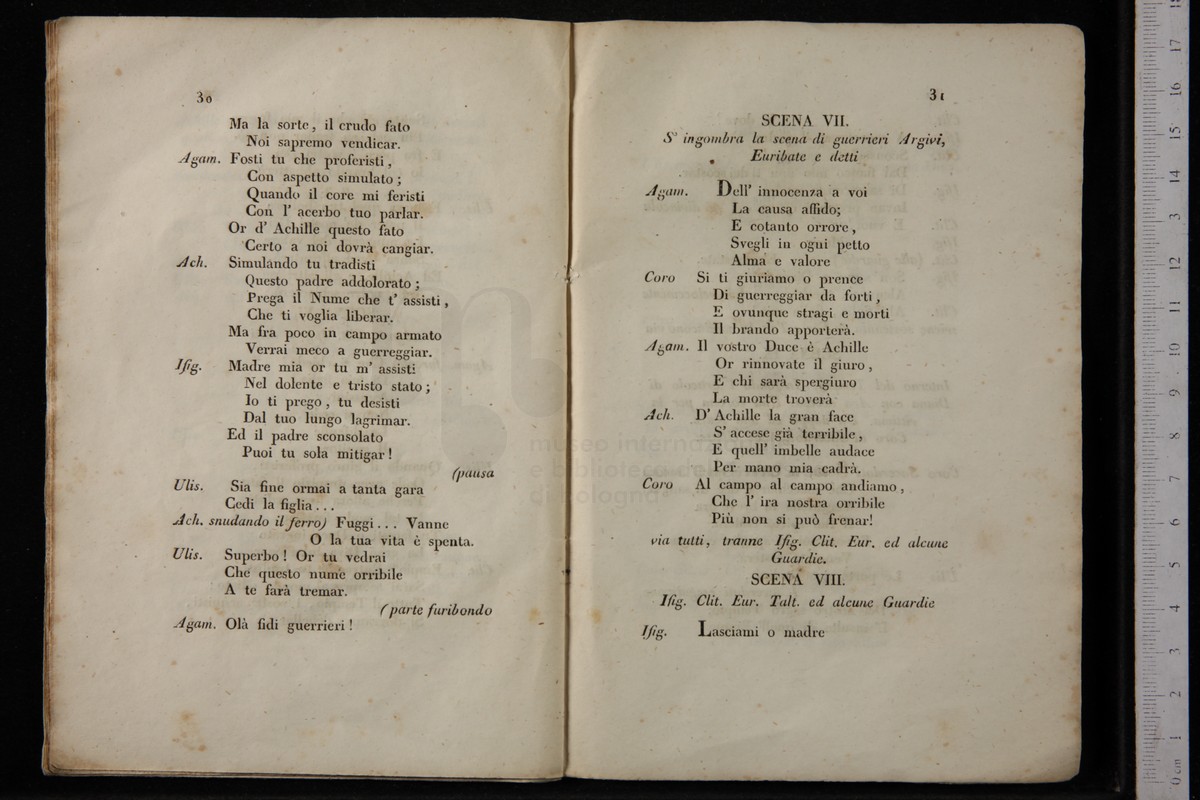 30
Ma la sorte, il crudo fato
Noi sapremo vendicar.
Agam. Fosti tu che proferisti,
Con aspetto simulato;
Quando il core mi feristi
Con l' acerbo tuo parlar.
Or d' Achille questo fato
Certo a noi dovrà cangiar.
Ach. Simulando tu tradisti
Questo padre addolorato;
Prega il Nume che t' assisti,
Che ti voglia liberar.
Ma fra poco in campo armato
Verrai meco a guerreggiar.
Ifig. Madre mia or tu m' assisti
Nel dolente e tristo stato;
Io ti prego, tu desisti
Dal tuo lungo lagrimar.
Ed il padre sconsolato
Puoi tu sola mitigar!
(pausa
Ulis. Sia fine ormai a tanta gara
Cedi la figlia...
Ach. snudando il ferro) Fuggi... Vanne
O la tua vita è spenta.
Ulis. Superbo! Or tu vedrai
Che questo nume orribile
A te farà tremar.
(parte furibondo
Agam. Olà fidi guerrieri!
31
SCENA VII.
S' ingombra la scena di guerrieri Argivi,
Euribate e detti
Agam. Dell' innocenza a voi
La causa affido;
E cotanto orrore,
Svegli in ogni petto
Alma e valore
Coro Si ti giuriamo o prence
Di guerreggiar da forti,
E ovunque stragi e morti
Il brando apporterà.
Agam. Il vostro Duce è Achille
Or rinnovate il giuro,
E chi sarà spergiuro
La morte troverà
Ach. D' Achille la gran face
S' accese già terribile,
E quell' imbelle audace
Per mano mia cadrà.
Coro Al campo al campo andiamo,
Che l' ira nostra orribile
Più non si può frenar!
via tutti, tranne Ifig. Clit. Eur. ed alcune
Guardie.
SCENA VIII.
Ifig. Clit. Eur. Talt. ed alcune Guardie
Ifig. Lasciami o madre
museo internaz
e biblioteca de
di bologna
0 cm 1 2 3 4 5 6 7 8 9 10 11 12 13 14 15 16 17